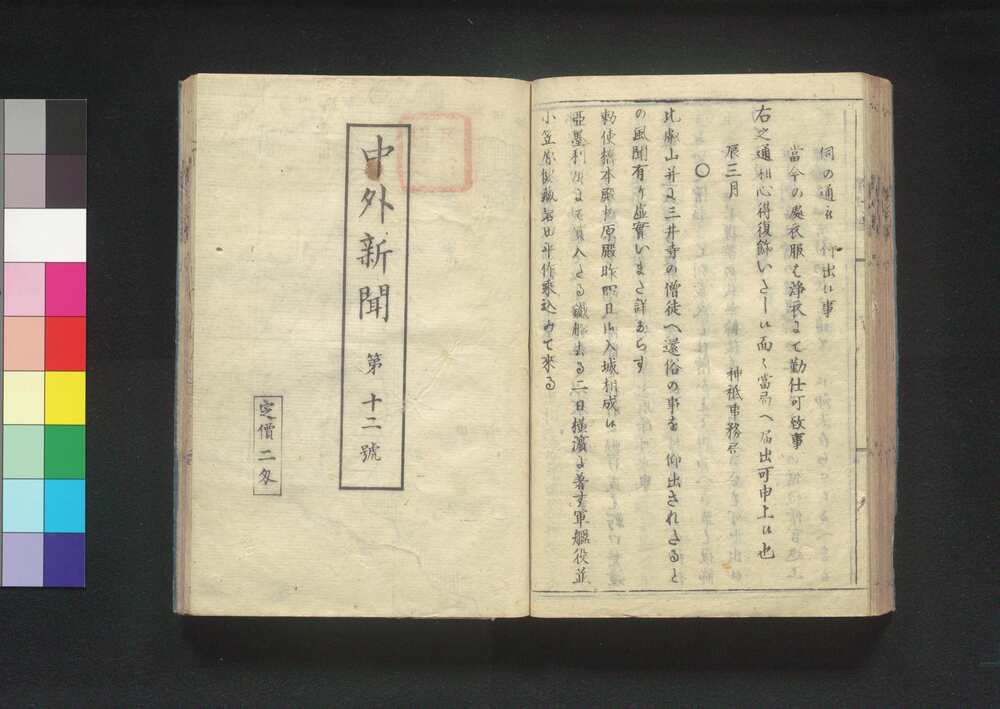 伺の通被仰出候事
當今の處衣服は浄衣にて勤仕可致事
右之通相心得復飾いたし候面々當局へ届出可申上候也
辰三月
神祇事務局
○
比叡山并に三井寺の僧徒へ還俗の事を被仰出されたると
の風聞有り虚實いまた詳ならす
勅使橋本殿柳原殿昨四日御入城相成候
亞墨利加にて買入たる鐵船去る二日横濱に着す軍艦役並
小笠原賢藏岩田平作乘込みて來る
中外新聞 第十二號
定價二匁